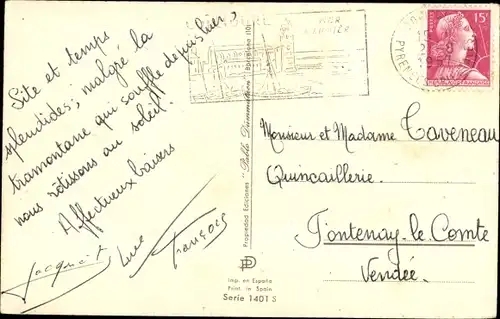 Site et temps
splendides, malgré la
tramontane qui souffle depuis hier;
nous rôtissons au soleil.
Affectueux baisers
Luce François
MER
15F
POSTES
PYRÉNÉES
Propriedad Ediciones "Pablo Dümmatzen" Barcelona
Imp. en España
Print. in Spain
Serie 1401 S
Monsieur et Madame Taveneau
Quincaillerie.
Fontenay-le-Comte
Vendée.